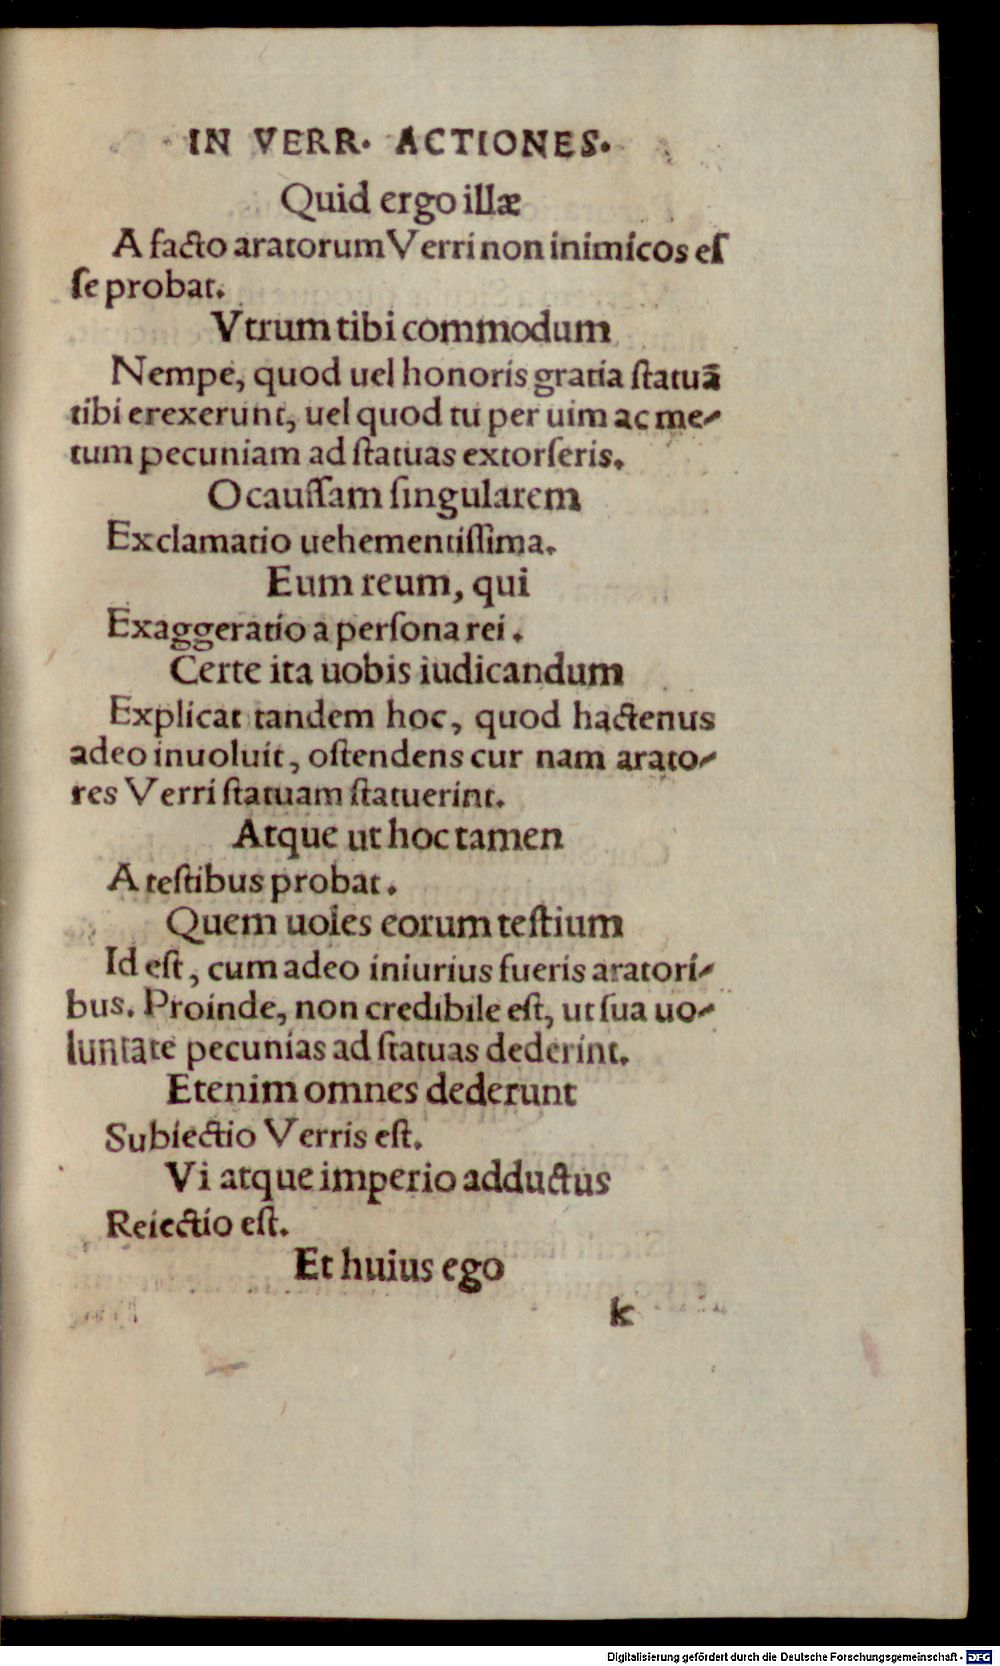 IN VERR. ACTIONES.
Quid ergo illæ
A facto aratorum Verri non inimicos eſ
ſe probat.
Vtrum tibi commodum
Nempe, quod uel honoris gratia ſtatuā
tibi erexerunt, uel quod tu per uim ac me-
tum pecuniam ad ſtatuas extorſeris.
O cauſſam ſingularem
Exclamatio uehementiſſima.
Eum reum, qui
Exaggeratio a perſona rei.
Certe ita uobis iudicandum
Explicat tandem hoc, quod hactenus
adeo inuoluit, oſtendens cur nam arato-
res Verri ſtatuam ſtatuerint.
Atque ut hoc tamen
A teſtibus probat.
Quem uoles eorum teſtium
Id eſt, cum adeo iniurius fueris aratori-
bus. Proinde, non credibile eſt, ut ſua uo-
luntate pecunias ad ſtatuas dederint.
Etenim omnes dederunt
Subiectio Verris eſt.
Vi atque imperio adductus
Reiectio eſt.
Et huius ego
k
Digitalisierung gefördert durch die Deutsche Forschungsgemeinschaft - DFG